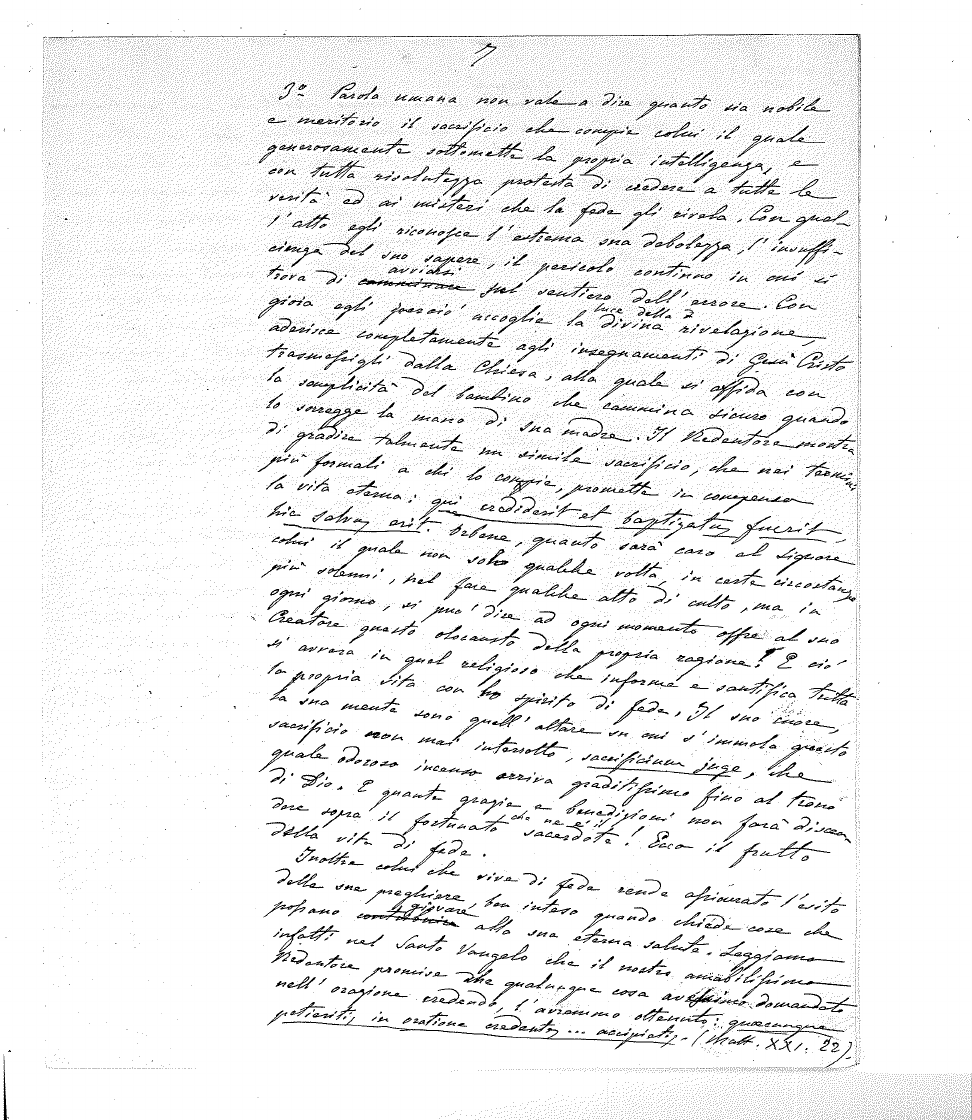 7
3º Parola umana non vale a dire quanto sia nobile
e meritorio il sacrificio che compie colui il quale
generosamente sottomette la propria intelligenza, e
con tutta risolutezza protesta di credere a tutte le
verità ed ai misteri che la fede gli rivela. Con quel-
l'atto egli riconosce l'estrema sua debolezza, l'insuffi-
cienza del suo sapere, il pericolo continuo in cui si
avviarsi
trova di camminare sul sentiero dell'errore. Con
luce della
gioia egli perciò accoglie la divina rivelazione,
aderisce completamente agli insegnamenti di Gesù Cristo
trasmessigli dalla Chiesa, alla quale si affida con
la semplicità del bambino che cammina sicuro quando
lo sorregge la mano di sua madre. Il Redentore mostra
di gradire talmente un simile sacrificio, che nei termini
più formali a chi lo compie, promette in compenso
la vita eterna: qui crediderit et baptizatus fuerit,
hic salvus erit. Ebbene, quanto sarà caro al Signore
colui il quale non solo qualche volta, in certe circostanze
più solenni, nel fare qualche atto di culto, ma in
ogni giorno, si può dire ad ogni momento offre al suo
Creatore questo olocausto della propria ragione! E ciò
si avvera in quel religioso che informa e santifica tutta
la propria vita con lo spirito di fede. Il suo cuore,
la sua mente sono quell'altare su cui s'immola questo
sacrificio non mai interrotto, sacrificium juge, che
quale odoroso incenso arriva graditissimo fino al trono
di Dio. E quante grazie e benedizioni non farà discen
che ne è il
dere sopra il fortunato sacerdote! Ecco il frutto
della vita di fede.
Inoltre colui che vive di fede rende assicurato l'esito
delle sue preghiere, ben inteso quando chiede cose che
giovare
possano contribuire alla sua eterna salute. Leggiamo
infatti nel Santo Vangelo che il nostro amabilissimo
Redentore promise che qualunque cosa avessimo domandato
nell'orazione credendo, l'avremmo ottenuto: quaecunque
petieritis in oratione credentes ... accipietis. (Matt. XXI. 22).